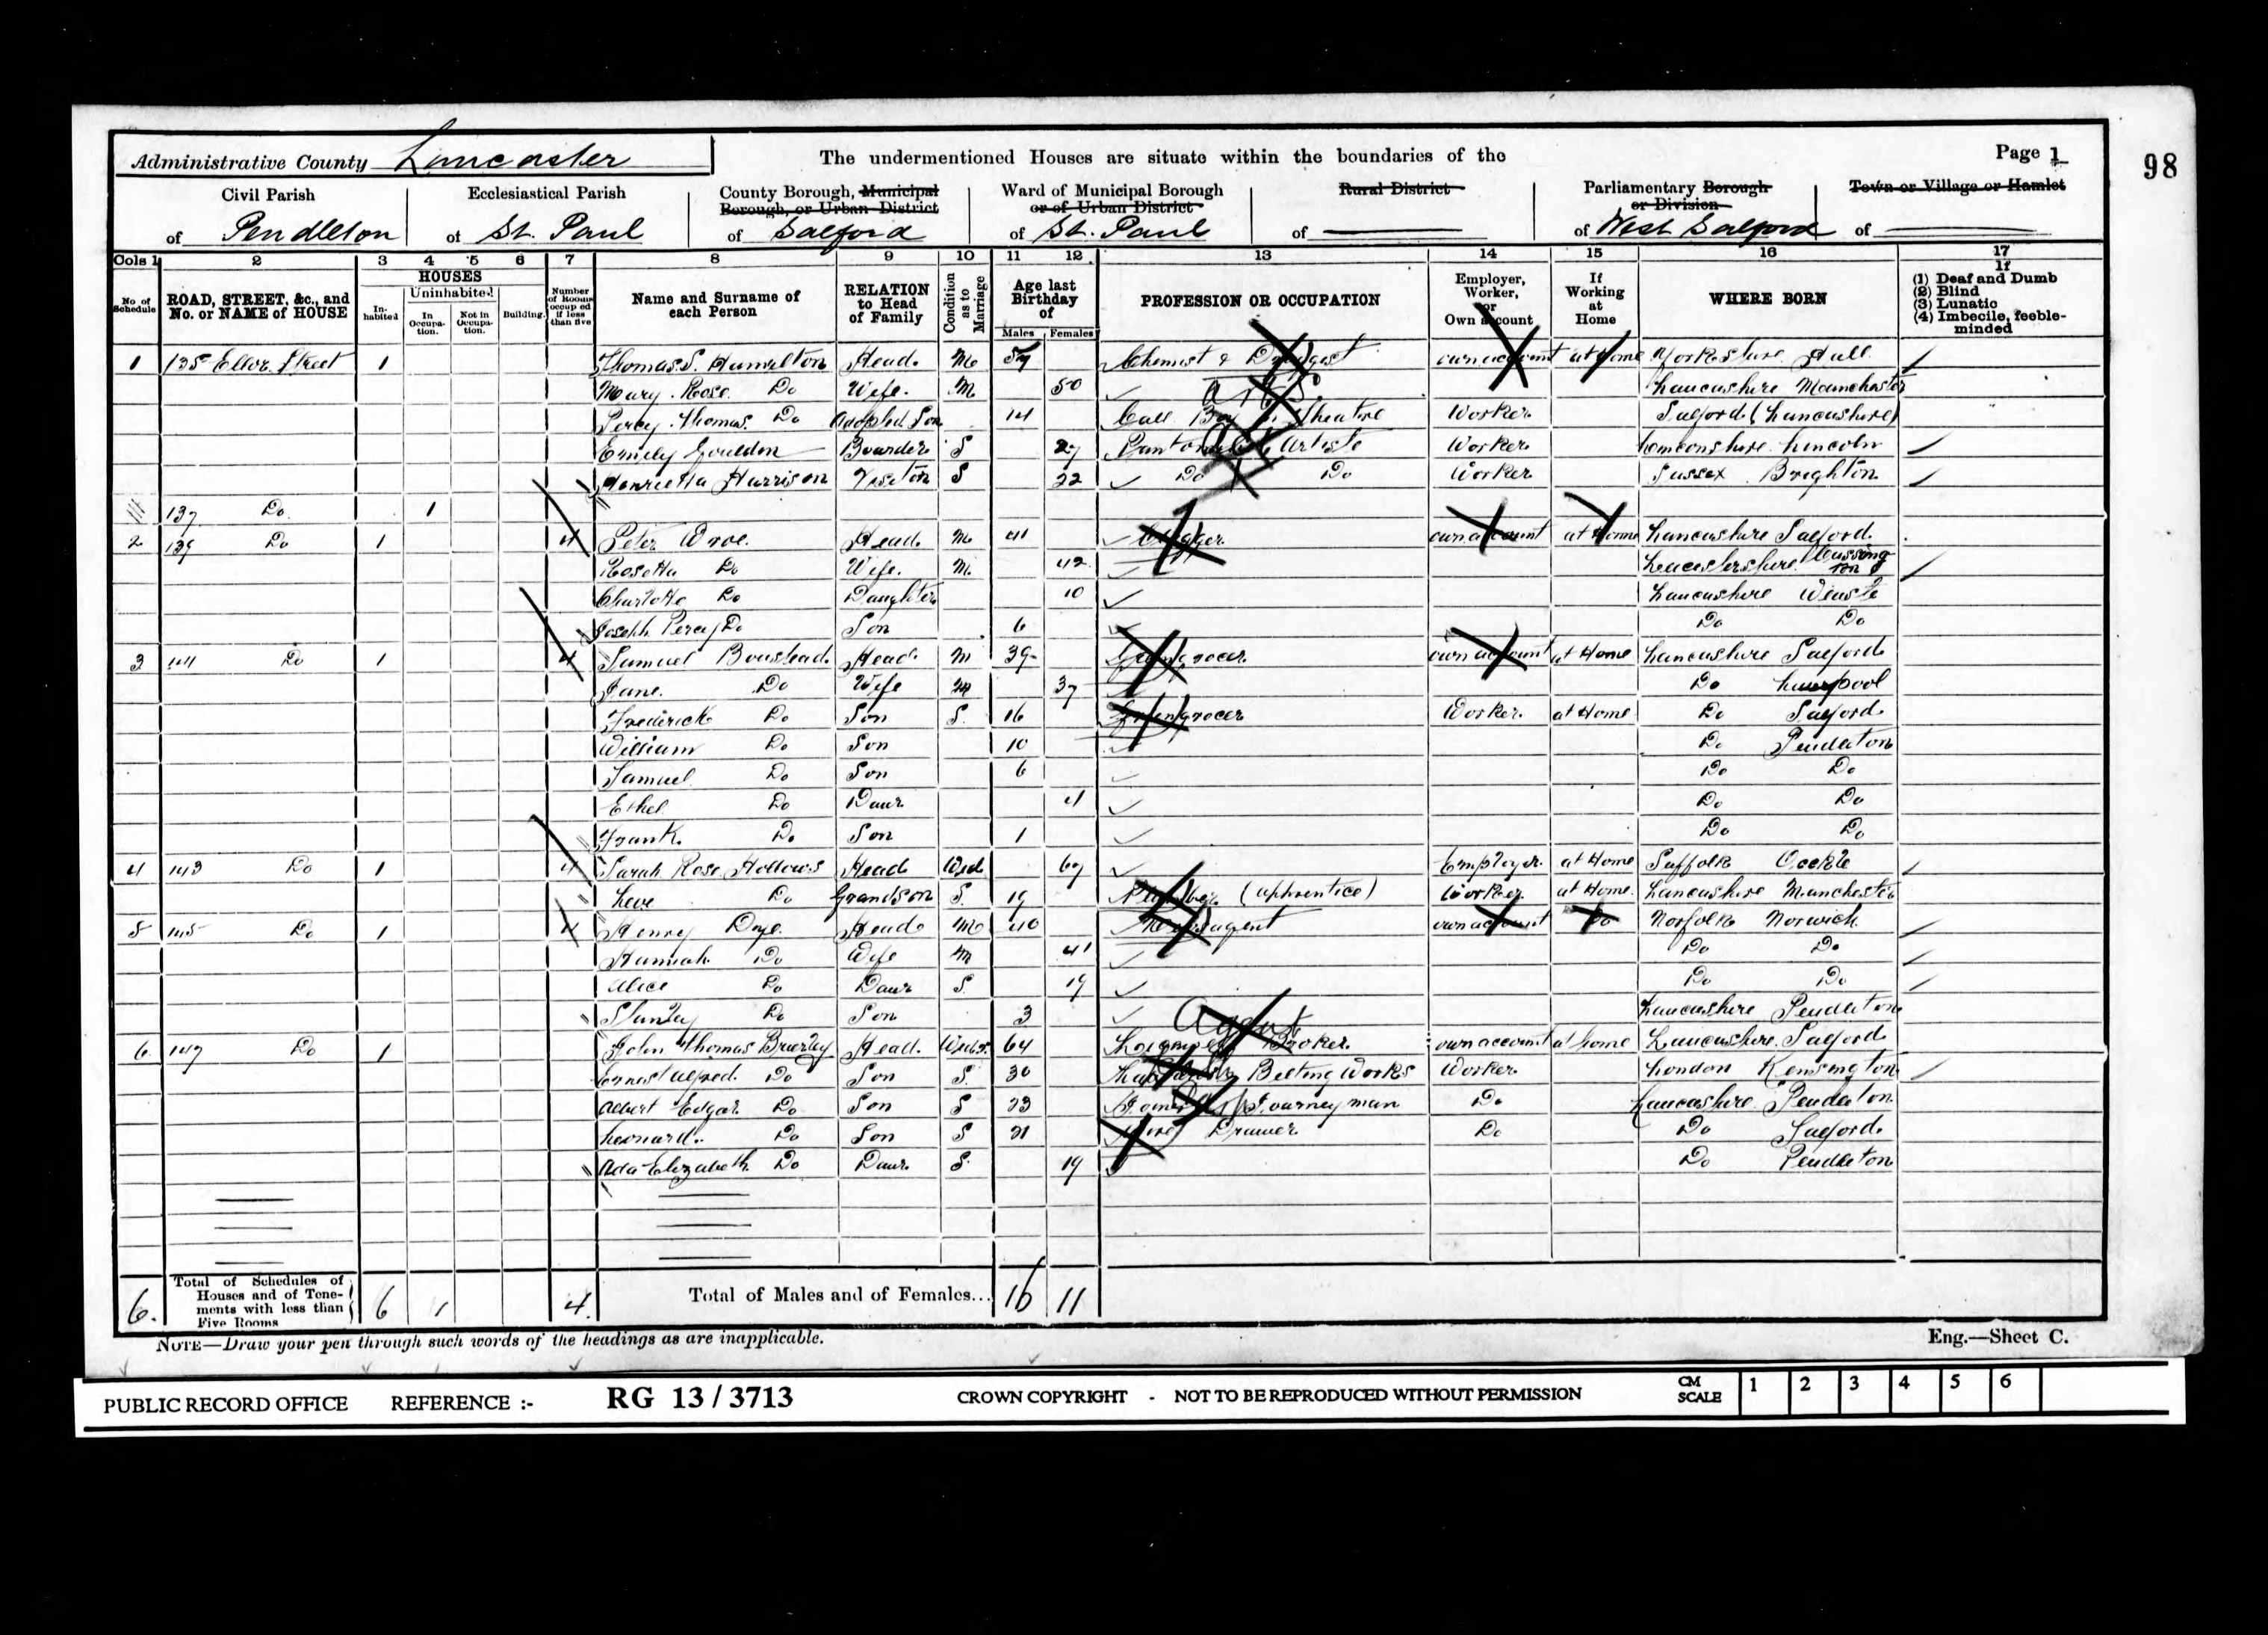 Administrative County Lancaster The undermentioned Houses are situate within the boundaries of the Page 1
98
Civil Parish of Pendleton
Ecclesiastical Parish of St. Paul
County Borough, Municipal Borough, or Urban District of Salford
Ward of Municipal Borough or of Urban District of St. Paul
Rural District of
Parliamentary Borough or Division of West Salford
Town or Village or Hamlet of
Cols 1 2 3 4 5 6 7 8 9 10 11 12 13 14 15 16 17
No of Schedule
ROAD, STREET, &c., and No. or NAME of HOUSE
HOUSES
In-habited
Uninhabited
In Occupa-tion.
Not in Occupa-tion.
Building.
Number of Rooms occupied if less than five
Name and Surname of each Person
RELATION to Head of Family
Condition as to Marriage
Age last Birthday of
Males Females
PROFESSION OR OCCUPATION
Employer, Worker, or Own account
If Working at Home
WHERE BORN
If
(1) Deaf and Dumb
(2) Blind
(3) Lunatic
(4) Imbecile, feeble-minded
1 135 Ellor Street 1 Thomas S. Hamilton Head M Chemist & Druggist own account at Home Yorkshire Hull
Mary Rose Do Wife M 50 Lancashire Manchester
Percy Thomas Do Adopted Son 14 Call Boy Theatre Worker Salford (Lancashire)
Emily Gouldon Boarder S 27 Pantomime Artiste Worker Lincoln
Henrietta Harrison Visitor S 22 Do Do Worker Sussex Brighton
137 Do 1
2 139 Do 1 4 Peter Wroe Head M 41 Clogger own account at Home Lancashire Salford
Rosetta Do Wife M 42 Leicestershire
Charlotte Do Daughter 10 Lancashire Weaste
Joseph Percy Do Son 6 Do Do
3 141 Do 1 4 Samuel Boustead Head M 39 Greengrocer own account at Home Lancashire Salford
Jane Do Wife M 37 Do Liverpool
Frederick Do Son S 16 Greengrocer Worker at Home Do Salford
William Do Son 10 Do Pendleton
Samuel Do Son 6 Do Do
Ethel Do Daur 4 Do Do
Frank Do Son 1 Do Do
4 143 Do 1 4 Sarah Rose Hollows Head Wid 67 Employer at Home Suffolk
Do Grandson S 19 Plumber (apprentice) Worker at Home Lancashire Manchester
5 145 Do 1 4 Henry Dye Head M 40 Newsagent own account Do Norfolk Norwich
Hannah Do Wife M 41 Do Do
Alice Do Daur S 19 Do Do
Stanley Do Son 3 Lancashire Pendleton
Agent
6 147 Do 1 John Thomas Brierley Head Widr 64 Broker own account at home Lancashire Salford
Ernest Alfred Do Son S 30 Belting Works Worker London Kensington
Albert Edgar Do Son S 23 Joiner Journeyman Do Lancashire Pendleton
Leonard Do Son S 21 Wire Drawer Do Do Salford
Ada Elizabeth Do Daur S 19 Do Pendleton
6. Total of Schedules of Houses and of Tene-ments with less than Five Rooms 6 1 4. Total of Males and of Females... 16 11
NOTE—Draw your pen through such words of the headings as are inapplicable. Eng.—Sheet C.
PUBLIC RECORD OFFICE REFERENCE :- RG 13 / 3713 CROWN COPYRIGHT - NOT TO BE REPRODUCED WITHOUT PERMISSION CM SCALE 1 2 3 4 5 6